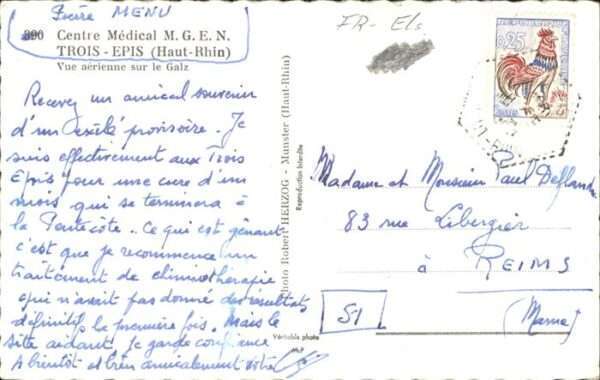 Pierre MENU
890 Centre Médical M. G. E. N.
TROIS - EPIS (Haut-Rhin)
Vue aérienne sur le Galz
Recevez un amical souvenir
d'un exilé provisoire. Je
suis effectivement aux Trois
Epis pour une cure d'un
mois qui se terminera à
la Pentecôte. Ce qui est gênant
c'est que je recommence un
traitement de climothérapie
qui n'avait pas donné des résultats
définitifs la première fois. Mais le
site aidant, je garde confiance
A bientôt et bien amicalement vôtre
Photo Robert HERZOG - Munster (Haut-Rhin)
Reproduction Interdite
Véritable photo
FR - Els
0,25
Madame et Monsieur Paul Deflandre
83 rue Libergier
à REIMS
51
(Marne)